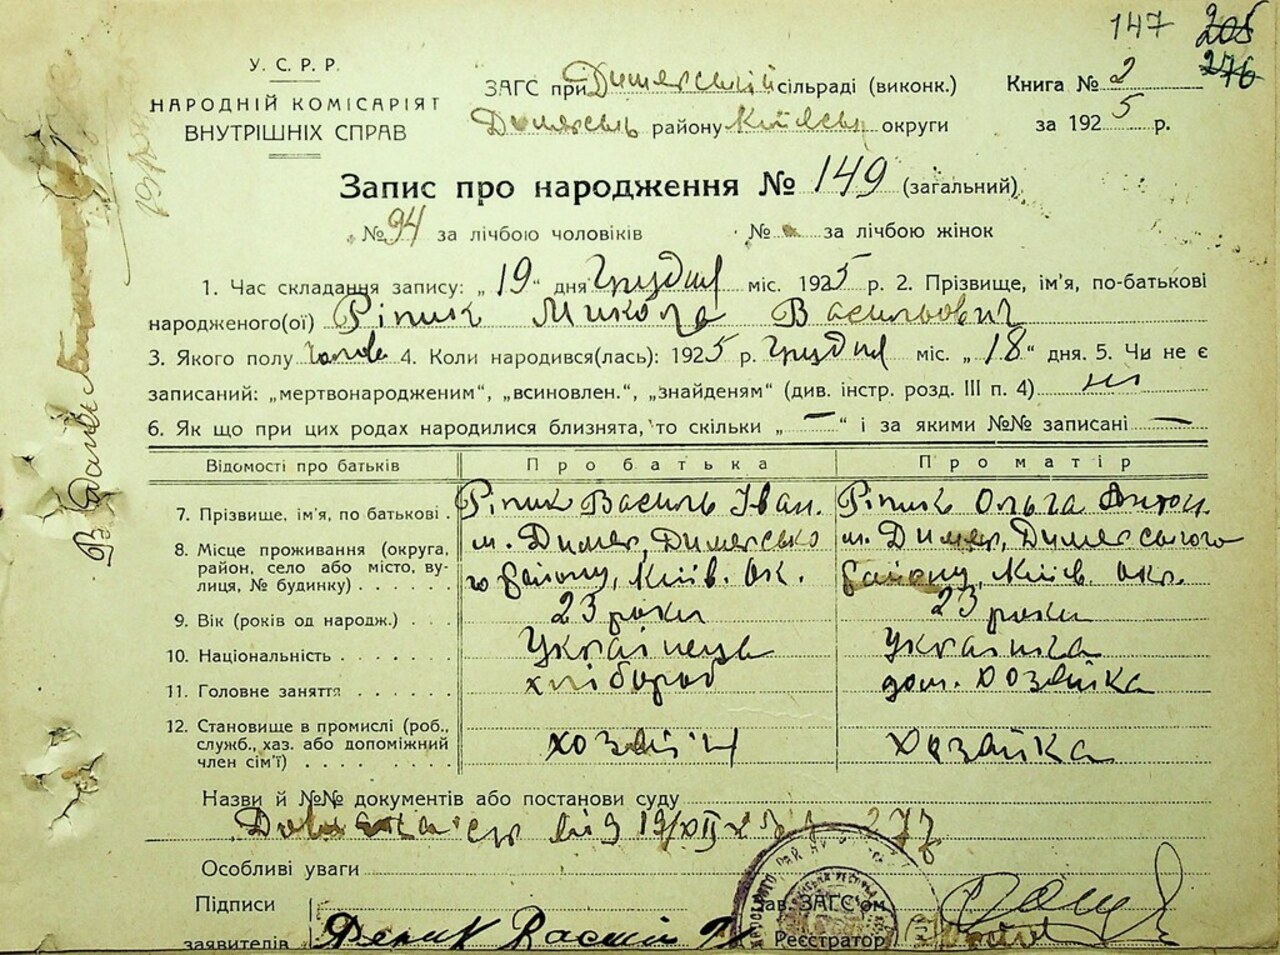 147 205
276
У. С. Р. Р.
НАРОДНІЙ КОМІСАРІЯТ
ВНУТРІШНІХ СПРАВ
ЗАГС при Димерській сільраді (виконк.)
Димерськ району Київськ округи
Книга № 2
за 1925 р.
Запис про народження № 149 (загальний)
№ 94 за лічбою чоловіків № за лічбою жінок
1. Час складання запису: „19“ дня Грудня міс. 1925 р. 2. Прізвище, ім'я, по-батькові
народженого(ої) Ріпик Микола Васильович
3. Якого полу чолов 4. Коли народився(лась): 1925 р. Грудня міс. „18“ дня. 5. Чи не є
записаний: „мертвонародженим“, „всиновлен.“, „знайденям“ (див. інстр. розд. III п. 4) ні
6. Як що при цих родах народилися близнята, то скільки „—“ і за якими №№ записані —
Відомості про батьків Про батька Про матір
7. Прізвище, ім'я, по батькові . Ріпик Василь Іван. Ріпик Ольга Антон.
8. Місце проживання (округа, район, село або місто, вулиця, № будинку) . . . . . .
м. Димер, Димерсько
го району, Київ. ок.
м. Димер, Димерського
району, Київ. окр.
9. Вік (років од народж.) . . . 23 роки 23 роки
10. Національність . . . . . . . Українець Українка
11. Головне заняття . . . . . . хлібороб дом. хозяйка
12. Становище в промислі (роб., служб., хаз. або допоміжний член сім'ї) . . . . . . . . . хозяїн хозяйка
Назви й №№ документів або постанови суду
від 19/XII 277
Особливі уваги
Підписи
заявителів
Зав. ЗАГС'ом
Реєстратор